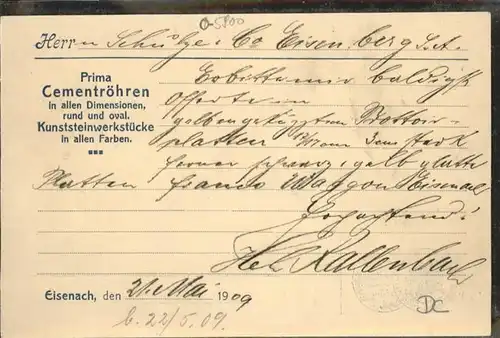 a 5800
Herrn Schulze & Co Eisenberg S.A.
Prima
Cementröhren
in allen Dimensionen,
rund und oval.
Kunststeinwerkstücke
in allen Farben.
Erbitte mir baldigst
Offerte in
gelben gekuppten Trottoir-
platten stark
ferner schwarz & gelb glatte
Platten franco Waggon Eisenach
Hochachtend!
Kallenbach
Eisenach, den 21. Mai 1909
b. 22/5.09.
DC